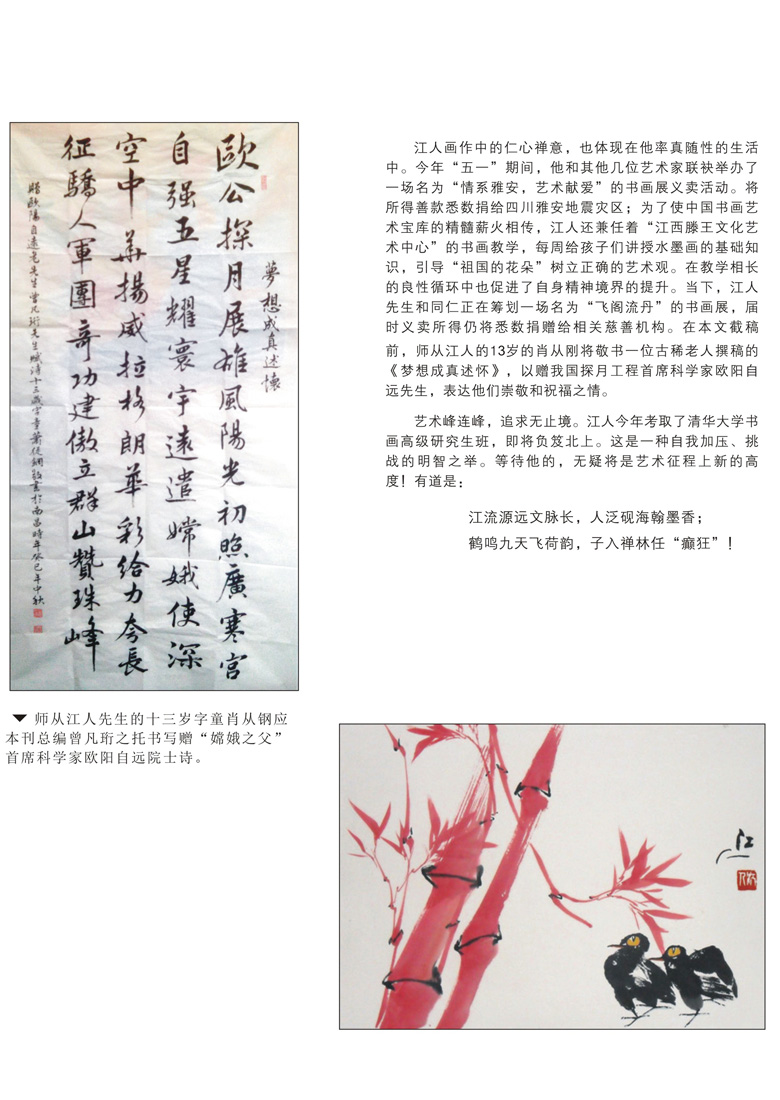 夢想成真述懷
歐公探月展雄風陽光初照廣寒宮
自强五星耀寰宇遠遣嫦娥使深
空中華揚威拉格朗華彩給力夸長
征驕人軍團奇功建傲立群山贊珠峰
贈歐陽自遠老先生曾凡珩先生賦詩十三歲字童蕭從鋼敬書於南昌時年癸巳年中秋
▼ 师从江人先生的十三岁字童肖从钢应
本刊总编曾凡珩之托书写赠“嫦娥之父”
首席科学家欧阳自远院士诗。
江人画作中的仁心禅意，也体现在他率真随性的生活
中。今年“五一”期间，他和其他几位艺术家联袂举办了
一场名为“情系雅安，艺术献爱”的书画展义卖活动。将
所得善款悉数捐给四川雅安地震灾区；为了使中国书画艺
术宝库的精髓薪火相传，江人还兼任着“江西滕王文化艺
术中心”的书画教学，每周给孩子们讲授水墨画的基础知
识，引导“祖国的花朵”树立正确的艺术观。在教学相长
的良性循环中也促进了自身精神境界的提升。当下，江人
先生和同仁正在筹划一场名为“飞阁流丹”的书画展，届
时义卖所得仍将悉数捐赠给相关慈善机构。在本文截稿
前，师从江人的13岁的肖从刚将敬书一位古稀老人撰稿的
《梦想成真述怀》，以赠我国探月工程首席科学家欧阳自
远先生，表达他们崇敬和祝福之情。
艺术峰连峰，追求无止境。江人今年考取了清华大学书
画高级研究生班，即将负笈北上。这是一种自我加压、挑
战的明智之举。等待他的，无疑将是艺术征程上新的高
度！有道是：
江流源远文脉长，人泛砚海翰墨香；
鹤鸣九天飞荷韵，子入禅林任“癫狂”！
江人